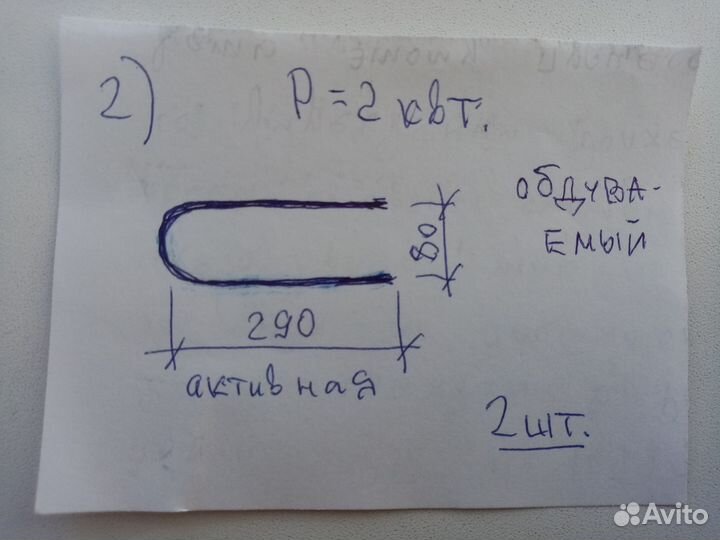 2)
P = 2 квт.
обдува-
емый
80
290
активная
2 шт.
Avito